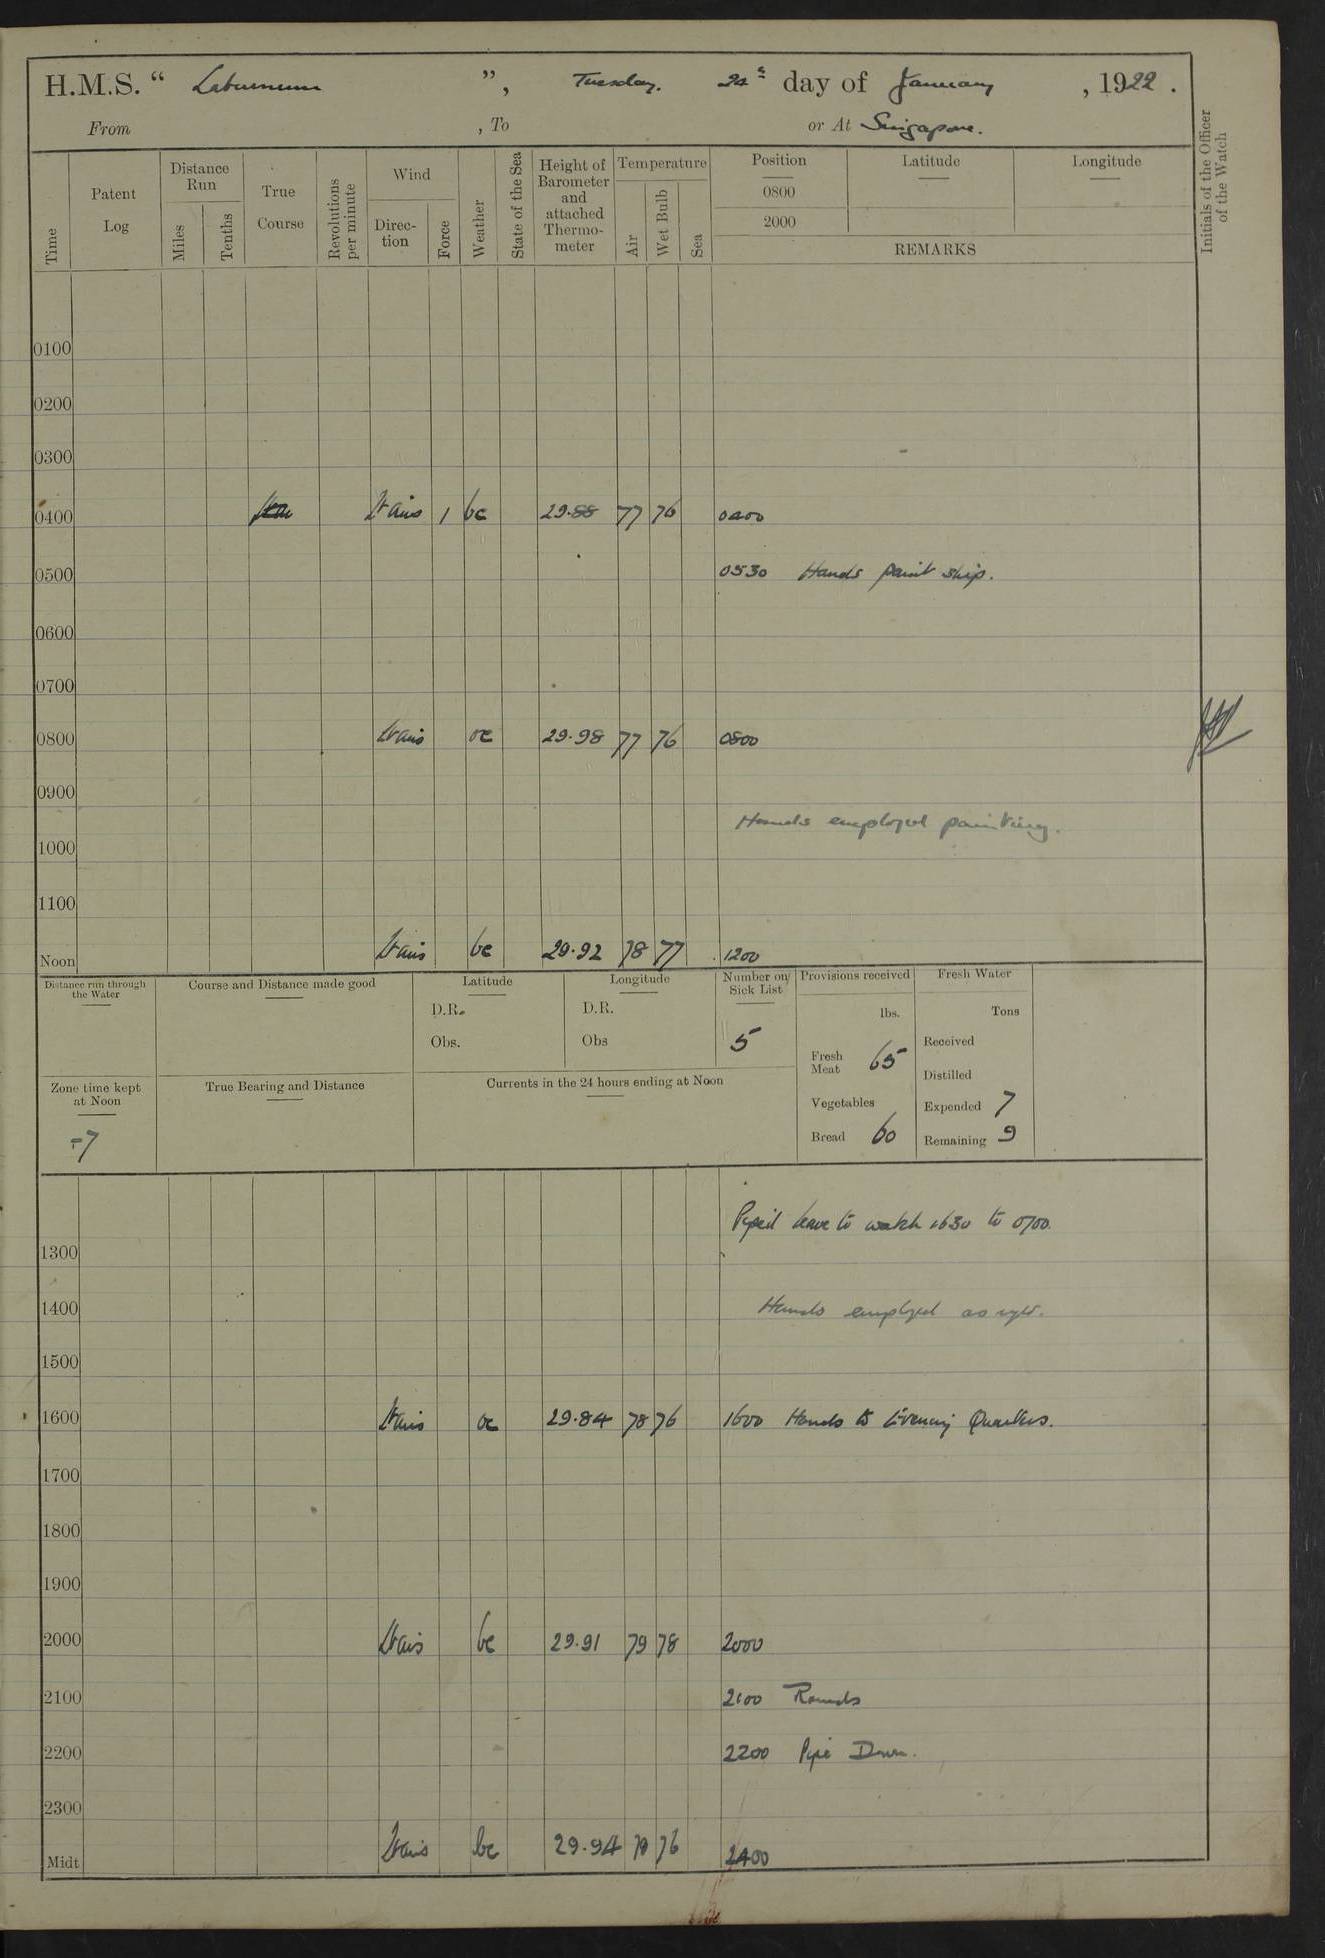 H.M.S. “ Laburnum ”, Tuesday. 24th day of January , 1922 .
From , To or At Singapore.
Time
Patent Log
Distance Run
Miles
Tenths
True Course
Revolutions per minute
Wind
Direc-tion
Force
Weather
State of the Sea
Height of Barometer and attached Thermo-meter
Temperature
Air
Wet Bulb
Sea
Position
Latitude
Longitude
0800
2000
REMARKS
Initials of the Officer of the Watch
0100
0200
0300
0400 Lt airs 1 bc 29.88 77 76 0400
0500 0530 Hands paint ship.
0600
0700
0800 Lt airs oc 29.98 77 76 0800
0900
Hands employed painting.
1000
1100
Noon Lt airs bc 29.92 78 77 1200
Distance run through the Water
Course and Distance made good
Latitude
D.R.
Obs.
Longitude
D.R.
Obs
Number on Sick List
5
Provisions received
lbs.
Fresh Meat 65
Vegetables
Bread 60
Fresh Water
Tons
Received
Distilled
Expended 7
Remaining 9
Zone time kept at Noon
-7
True Bearing and Distance
Currents in the 24 hours ending at Noon
Piped leave to watch 1630 to 0700.
1300
1400 Hands employed as
1500
1600 Lt airs oc 29.84 78 76 1600 Hands to Evening Quarters.
1700
1800
1900
2000 Lt airs bc 29.91 79 78 2000
2100 2100 Rounds
2200 2200 Pipe Down.
2300
Midt Lt airs bc 29.94 76 2400